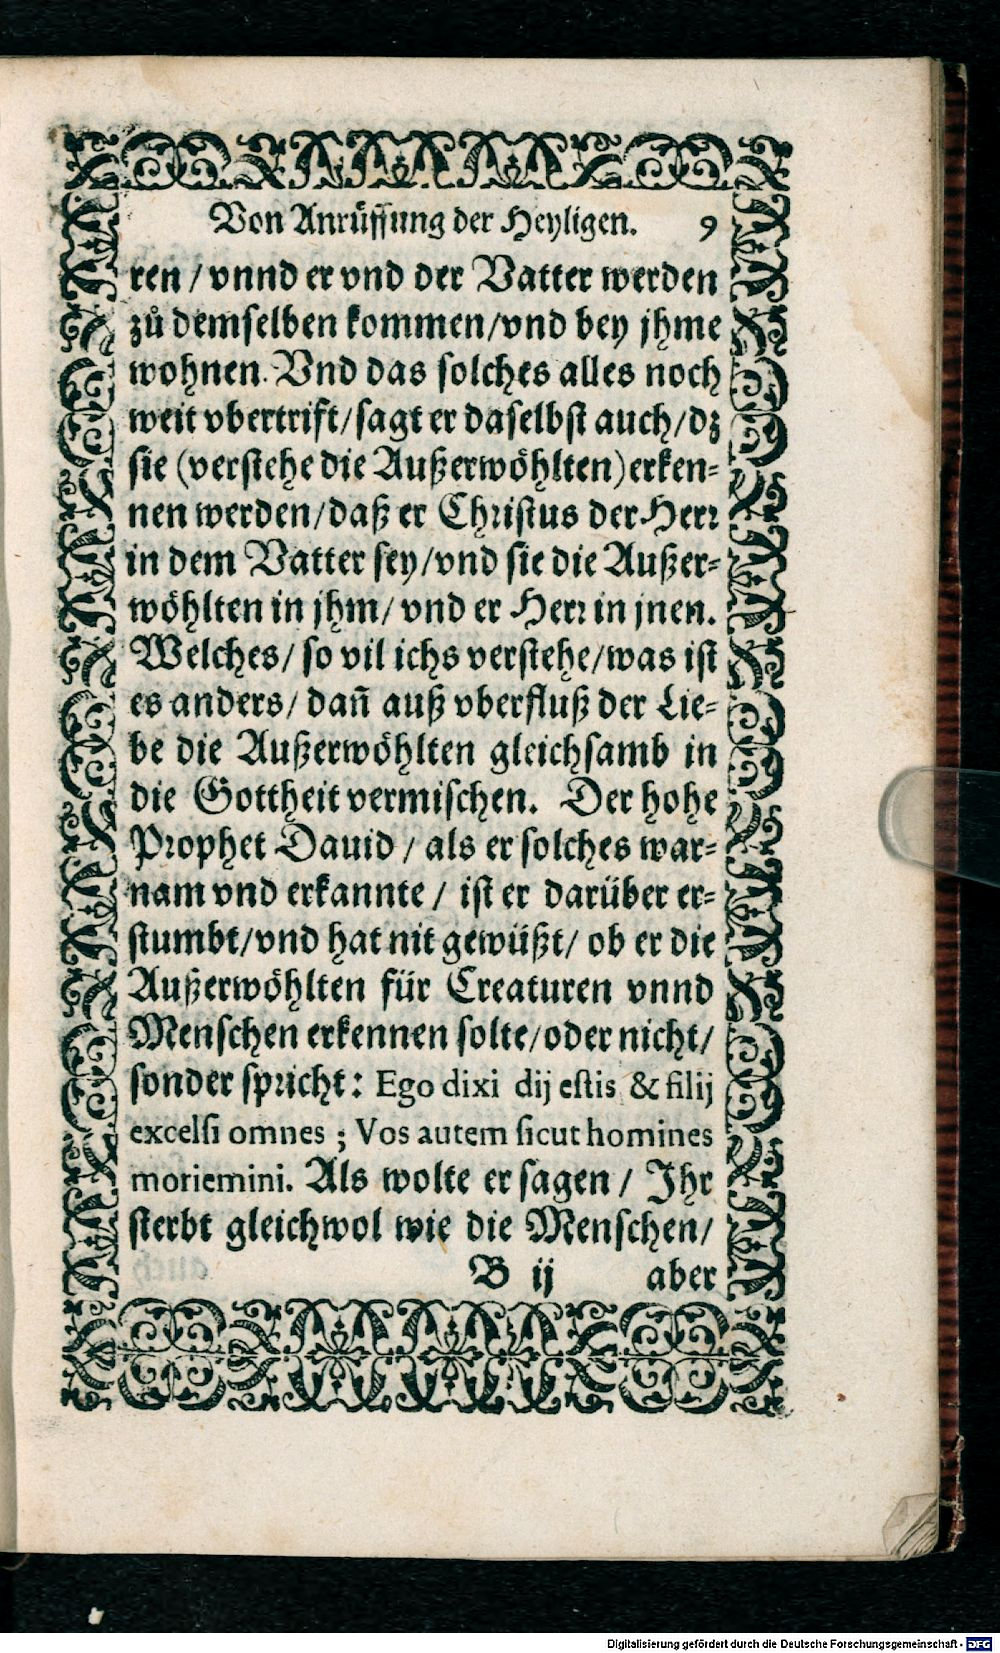 Von Anrüffung der Heyligen. 9
ren / vnnd er vnd der Vatter werden
zů demselben kommen/vnd bey jhme
wohnen. Vnd das solches alles noch
weit vbertrift/sagt er daselbst auch/dz
sie (verstehe die Außerwöhlten) erken-
nen werden/daß er Christus der Herr
in dem Vatter sey/vnd sie die Außer-
wöhlten in jhm/ vnd er Herr in jnen.
Welches/ so vil ichs verstehe/was ist
es anders/ dañ auß vberfluß der Lie-
be die Außerwöhlten gleichsamb in
die Gottheit vermischen. Der hohe
Prophet Dauid / als er solches war-
nam vnd erkannte / ist er darüber er-
stumbt/vnd hat nit gewüßt/ ob er die
Außerwöhlten für Creaturen vnnd
Menschen erkennen solte/oder nicht/
sonder spricht: Ego dixi dij estis & filij
excelsi omnes ; Vos autem sicut homines
moriemini. Als wolte er sagen / Ihr
sterbt gleichwol wie die Menschen/
B ij aber
Digitalisierung gefördert durch die Deutsche Forschungsgemeinschaft - DFG